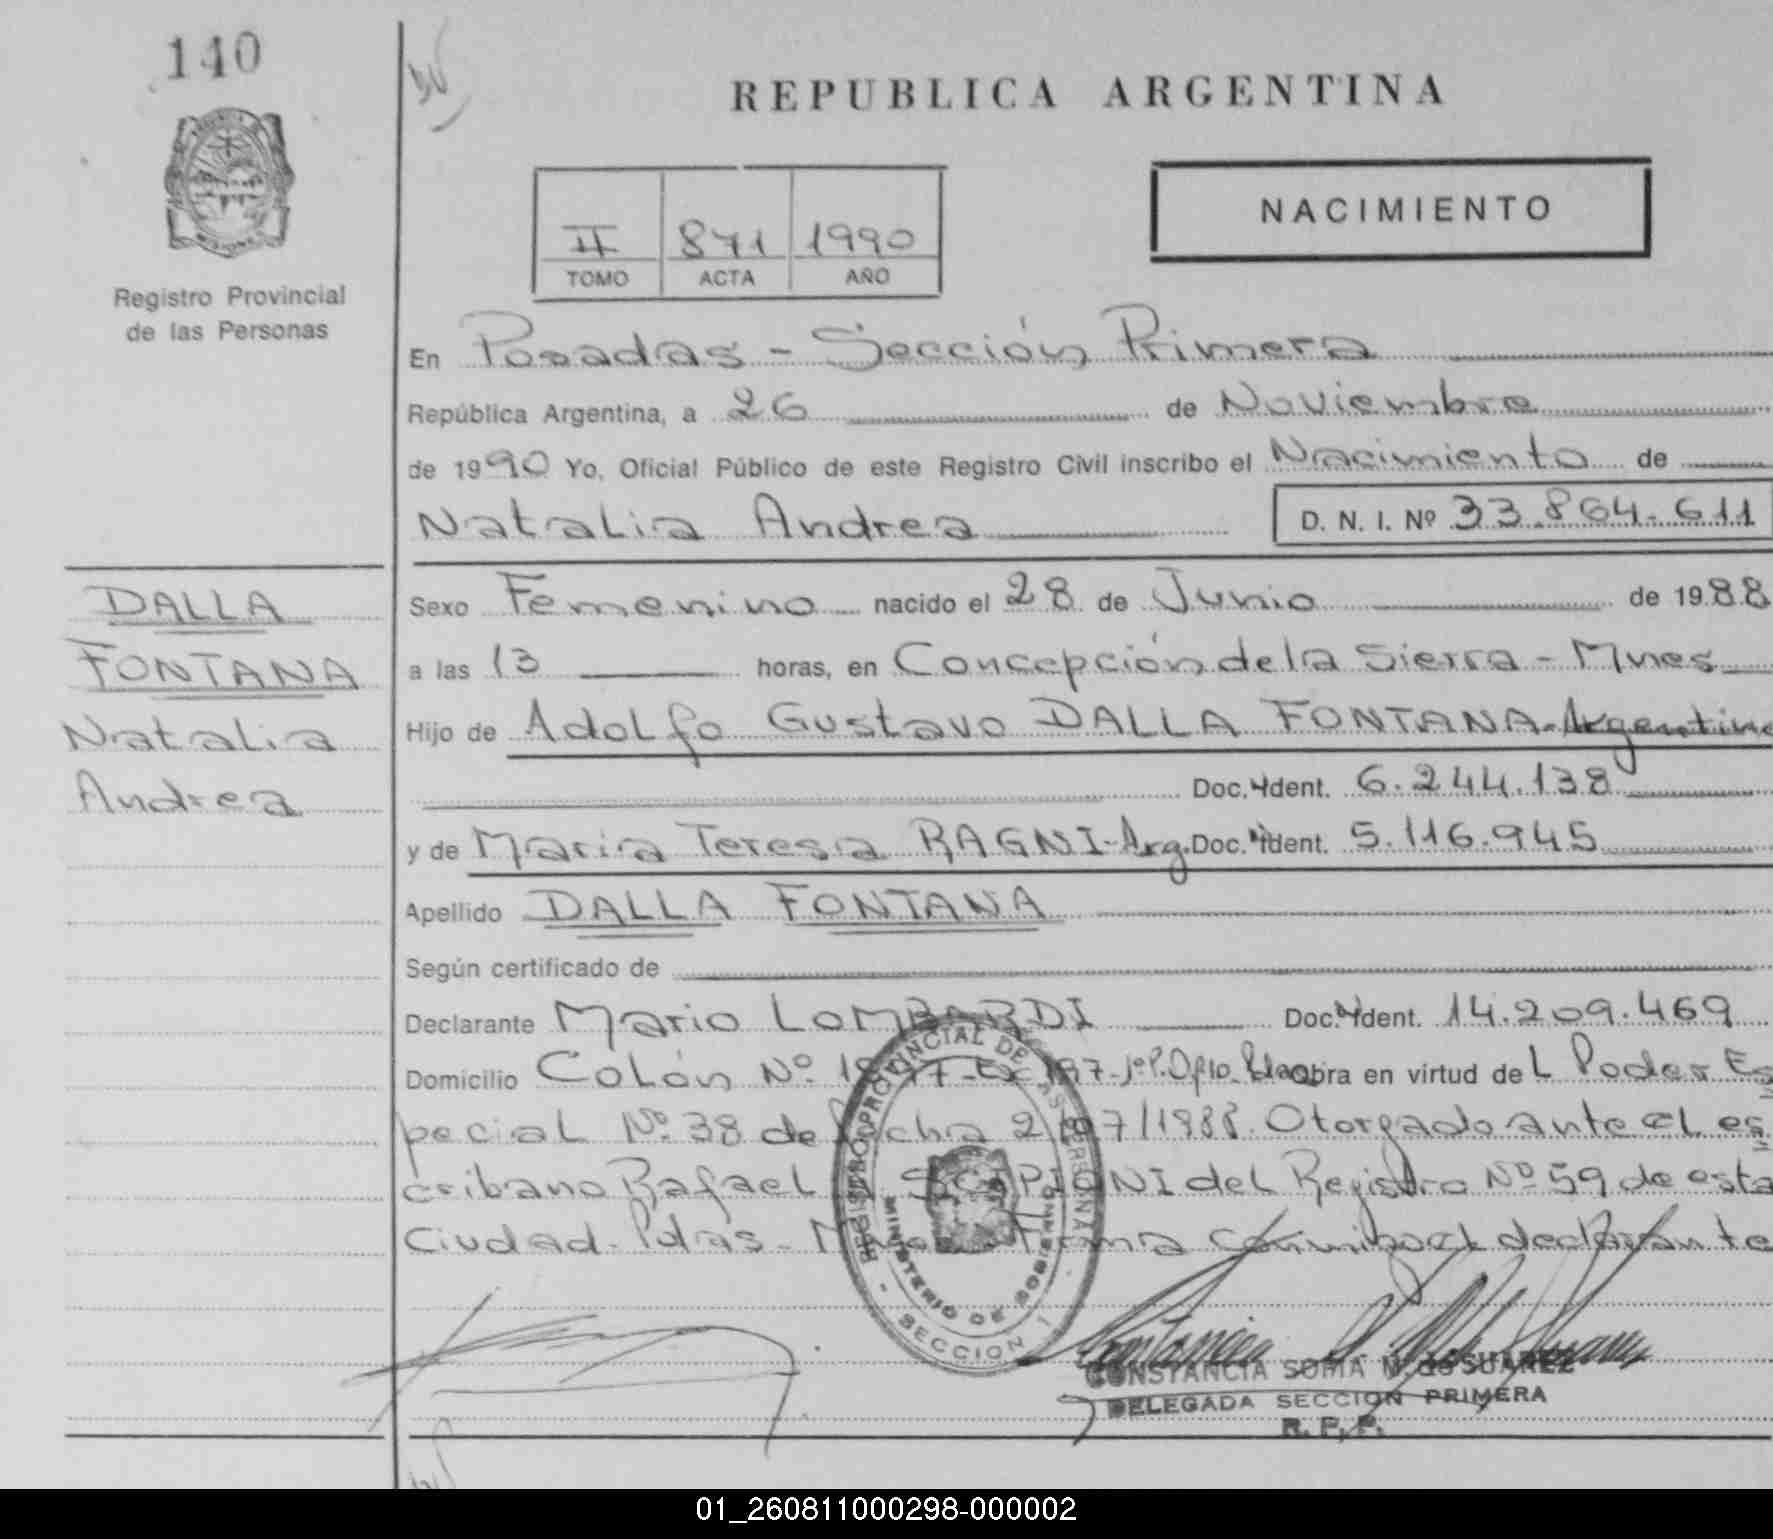 140
REPUBLICA ARGENTINA
NACIMIENTO
II 871 1990
TOMO ACTA AÑO
Registro Provincial
de las Personas
En Posadas - Sección Primera
República Argentina, a 26 de Noviembre
de 1990 Yo, Oficial Público de este Registro Civil inscribo el Nacimiento de
Natalia Andrea D. N. I. Nº 33.864.611
DALLA
FONTANA
Natalia
Andrea
Sexo Femenino nacido el 28 de Junio de 1988
a las 13 horas, en Concepción de la Sierra - Mnes
Hijo de Adolfo Gustavo DALLA FONTANA - Argentino
Doc. Ident. 6.244.138
y de Maria Teresa RAGNI - Arg. Doc. Ident. 5.116.945
Apellido DALLA FONTANA
Según certificado de
Declarante Mario LOMBARDI Doc. Ident. 14.209.469
Domicilio Colón Nº obra en virtud del Poder Es
pecial Nº 38 de fecha 2 /07/1988. Otorgado ante el es
cribano Rafael SCIPIONI del Registro Nº 59 de esta
Ciudad - Pdas - Firma el declarante
REGISTRO PROVINCIAL DE LAS PERSONAS
MINISTERIO DE GOBIERNO
- SECCION 1 -
CONSTANCIA SOFIA M. de SUAREZ
DELEGADA SECCION PRIMERA
R. P. P.
01_260811000298-000002